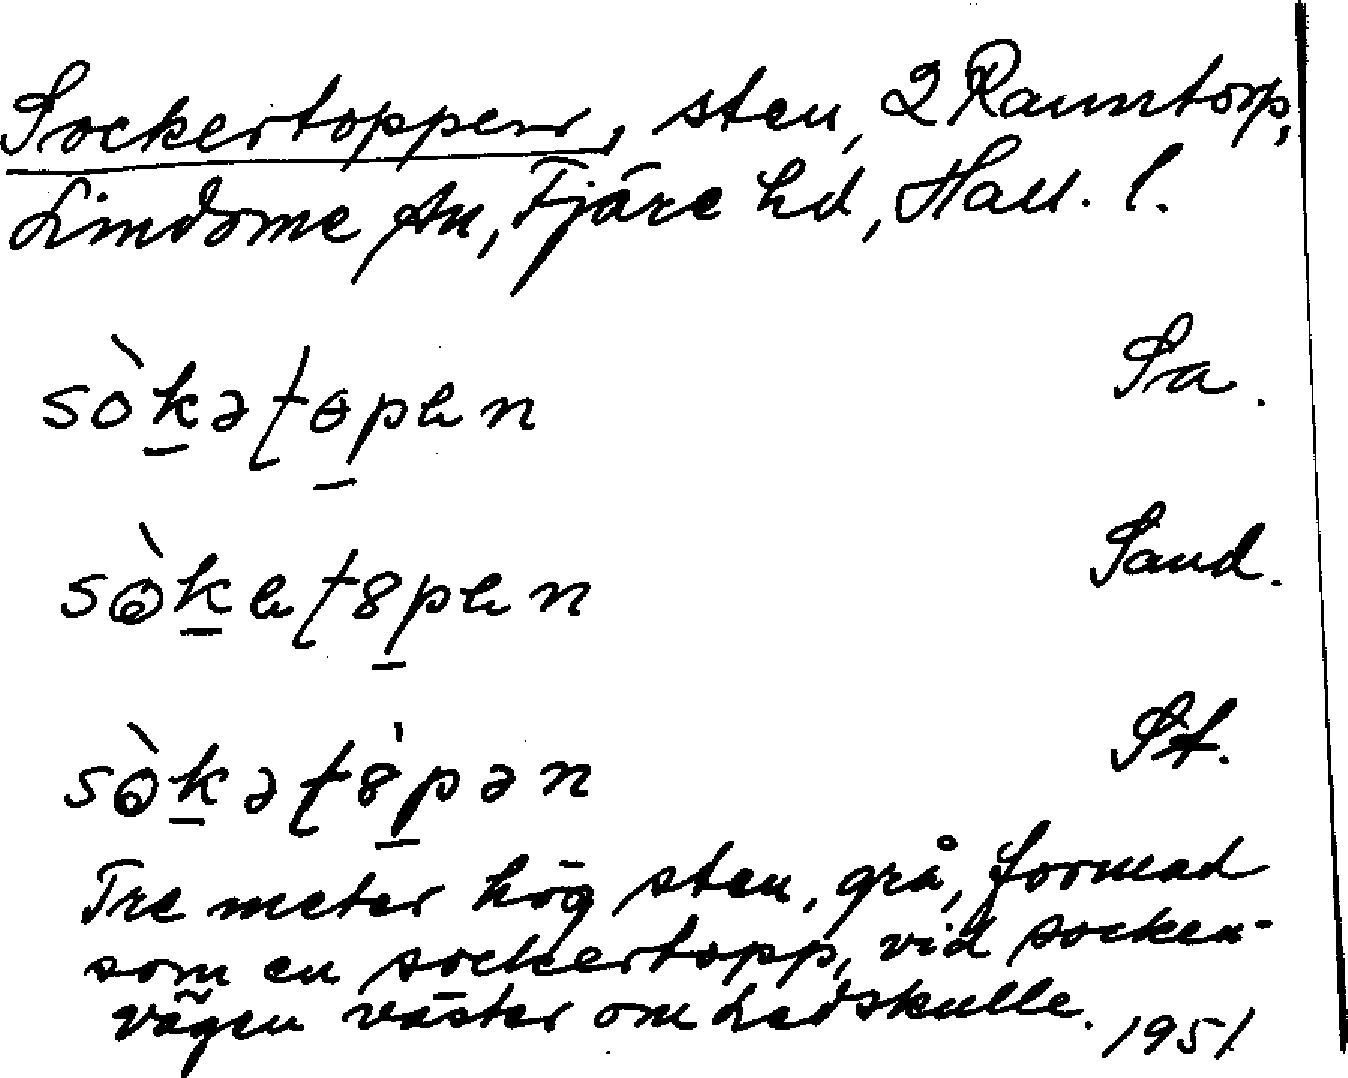 Sockertoppen, sten, 2 Ramntorp,
Lindome sn, Fjäre hd, Hall. l.
sòkəʈɵpen Sa.
Sand.
St.
Tre meter hög sten, grå, formad
som en sockertopp, vid socken-
vägen väster om Ledskulle. 1951